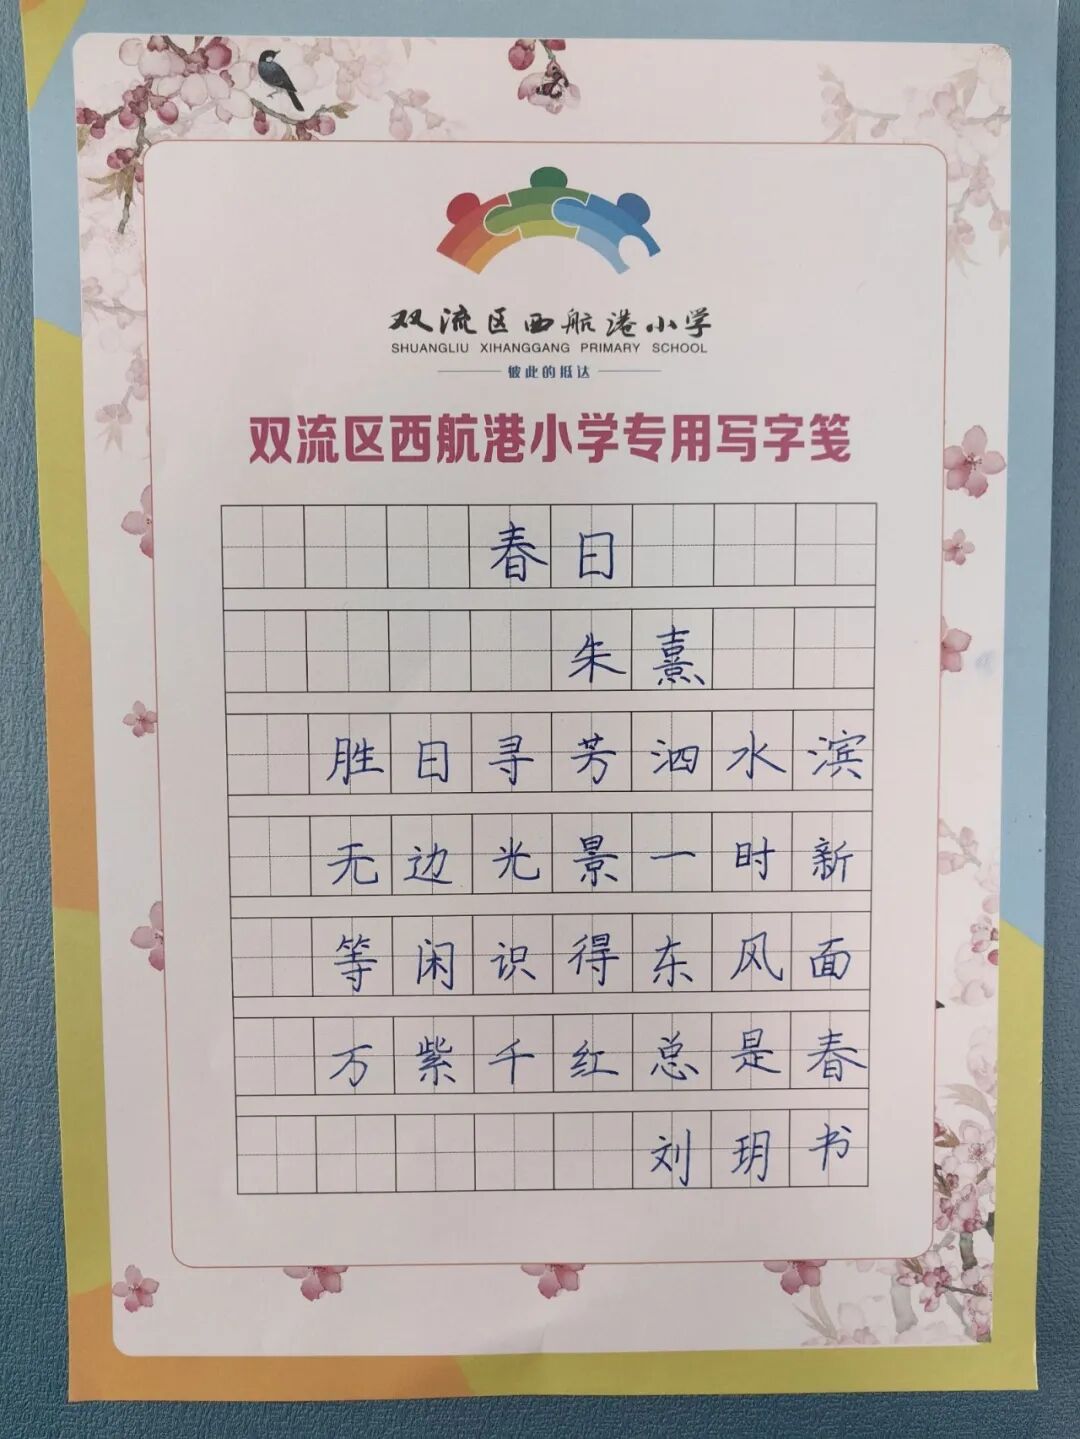 双流区西航港小学
SHUANGLIU XIHANGGANG PRIMARY SCHOOL
彼此的抵达
双流区西航港小学专用写字笺
春日
朱熹
胜日寻芳泗水滨
无边光景一时新
等闲识得东风面
万紫千红总是春
刘玥书